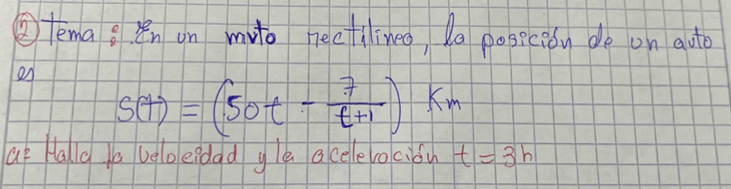 ② Tema: En un mvto rectilineo, la posición de un auto
es
S(t) = (50t - 7/(t+1)) Km
a= Halla la velocidad y la aceleración t = 3h